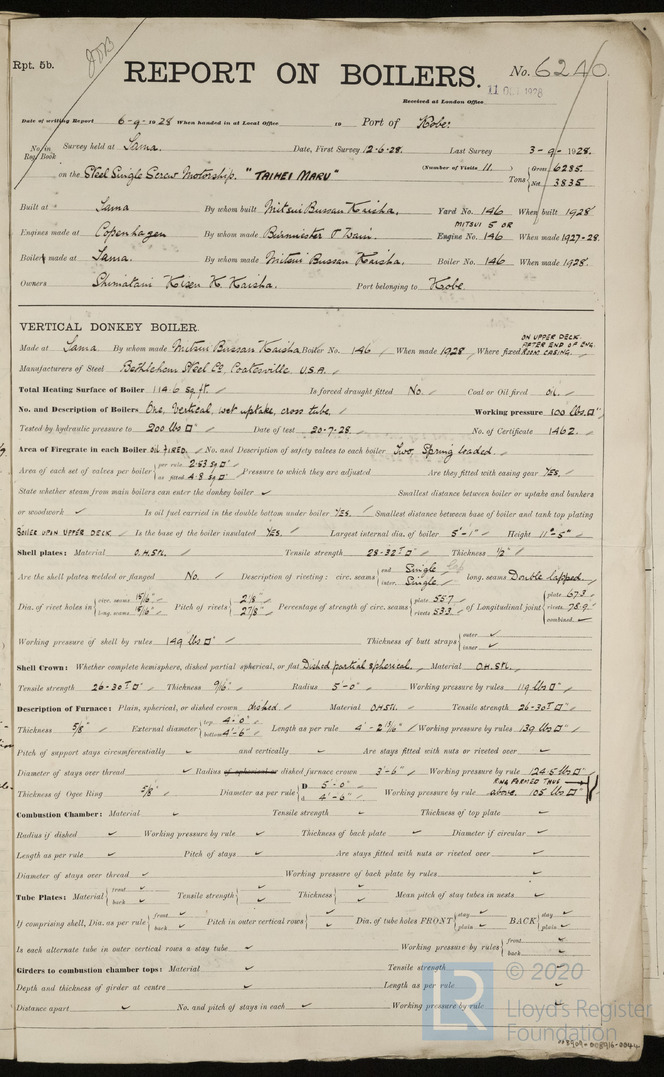 Rpt. 5b.
REPORT ON BOILERS.
No. 6240.
11 OCT 1928
Received at London Office
Date of writing Report 6-9-1928 When handed in at Local Office 19 Port of Kobe.
No. in Reg. Book Survey held at Tama. Date, First Survey 12-6-28. Last Survey 3-9-1928.
on the Steel Single Screw Motorship. "TAIHEI MARU" (Number of Visits 11.) Tons Gross 6285. Net 3835
Built at Tama By whom built Mitsui Bussan Kaisha. Yard No. 146 When built 1928
Engines made at Copenhagen By whom made Burmeister & Wain. MITSUI S OR Engine No. 146 When made 1927-28.
Boiler made at Tama. By whom made Mitsui Bussan Kaisha. Boiler No. 146 When made 1928.
Owners Shimatani Kisen K. Kaisha. Port belonging to Kobe
VERTICAL DONKEY BOILER.
Made at Tama By whom made Mitsui Bussan Kaisha Boiler No. 146 When made 1928 Where fixed ON UPPER DECK. AFTER END OF ENG. ROOM CASING.
Manufacturers of Steel Bethlehem Steel Co, Coatesville U.S.A.
Total Heating Surface of Boiler 114.6 sq. ft. Is forced draught fitted No. Coal or Oil fired OIL.
No. and Description of Boilers One, Vertical, wet uptake, cross tube. Working pressure 100 lbs.□"
Tested by hydraulic pressure to 200 lbs □" Date of test 20-7-28. No. of Certificate 1462.
Area of Firegrate in each Boiler OIL FIRED. No. and Description of safety valves to each boiler Two, Spring loaded.
Area of each set of valves per boiler per rule 2.53 sq □" as fitted 4.8 sq □" Pressure to which they are adjusted Are they fitted with easing gear YES.
State whether steam from main boilers can enter the donkey boiler ✓ Smallest distance between boiler or uptake and bunkers
or woodwork ✓ Is oil fuel carried in the double bottom under boiler YES. Smallest distance between base of boiler and tank top plating
BOILER UPON UPPER DECK Is the base of the boiler insulated YES. Largest internal dia. of boiler 5'-1" Height 11'-5"
Shell plates: Material O.H.Stl. Tensile strength 28-32T□" Thickness 1/2"
Are the shell plates welded or flanged No. Description of riveting: circ. seams end Single inter. Single long. seams Double lapped.
Dia. of rivet holes in circ. seams 15/16" long. seams 15/16" Pitch of rivets 2 1/8" 2 7/8" Percentage of strength of circ. seams plate 55.7 rivets 53.3 of Longitudinal joint plate 67.3 rivets 78.9 combined ✓
Working pressure of shell by rules 149 lbs □" Thickness of butt straps outer ✓ inner ✓
Shell Crown: Whether complete hemisphere, dished partial spherical, or flat Dished partial spherical. Material O.H.Stl.
Tensile strength 26-30T□" Thickness 9/16" Radius 5'-0" Working pressure by rules 119 lbs □"
Description of Furnace: Plain, spherical, or dished crown dished. Material O.H.Stl. Tensile strength 26-30T□"
Thickness 5/8" External diameter top 4-0" bottom 4'-6" Length as per rule 4'-2 15/16" Working pressure by rules 139 lbs □"
Pitch of support stays circumferentially ✓ and vertically ✓ Are stays fitted with nuts or riveted over ✓
Diameter of stays over thread ✓ Radius of spherical or dished furnace crown 3'-6" Working pressure by rule 124.5 lbs □"
Thickness of Ogee Ring 5/8" Diameter as per rule D 5'-0" d 4'-6" Working pressure by rule RING FORMED THUS above. 105 lbs □"
Combustion Chamber: Material ✓ Tensile strength ✓ Thickness of top plate ✓
Radius if dished ✓ Working pressure by rule ✓ Thickness of back plate ✓ Diameter if circular ✓
Length as per rule ✓ Pitch of stays ✓ Are stays fitted with nuts or riveted over ✓
Diameter of stays over thread ✓ Working pressure of back plate by rules ✓
Tube Plates: Material front ✓ back ✓ Tensile strength ✓ ✓ Thickness ✓ ✓ Mean pitch of stay tubes in nests ✓
If comprising shell, Dia. as per rule front ✓ back ✓ Pitch in outer vertical rows ✓ ✓ Dia. of tube holes FRONT stay ✓ plain ✓ BACK stay ✓ plain ✓
Is each alternate tube in outer vertical rows a stay tube ✓ Working pressure by rules front ✓ back ✓
Girders to combustion chamber tops: Material ✓ Tensile strength ✓
Depth and thickness of girder at centre ✓ Length as per rule ✓
Distance apart ✓ No. and pitch of stays in each ✓ Working pressure by rule ✓
LR © 2020
Lloyd's Register
Foundation
008909-008916-0044